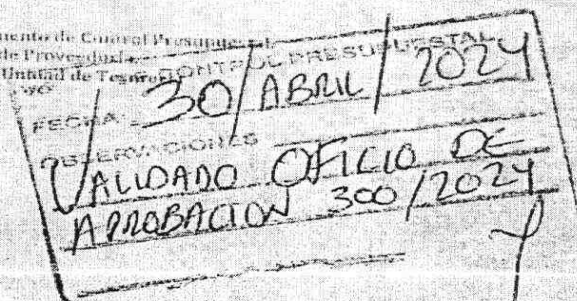 mento de Control Presupuestal
de Proveeduría
Unidad de Tesorería
CONTROL PRESUPUESTAL
FECHA: 30/ABRIL/2024
OBSERVACIONES
VALIDADO OFICIO DE
APROBACION 300/2024